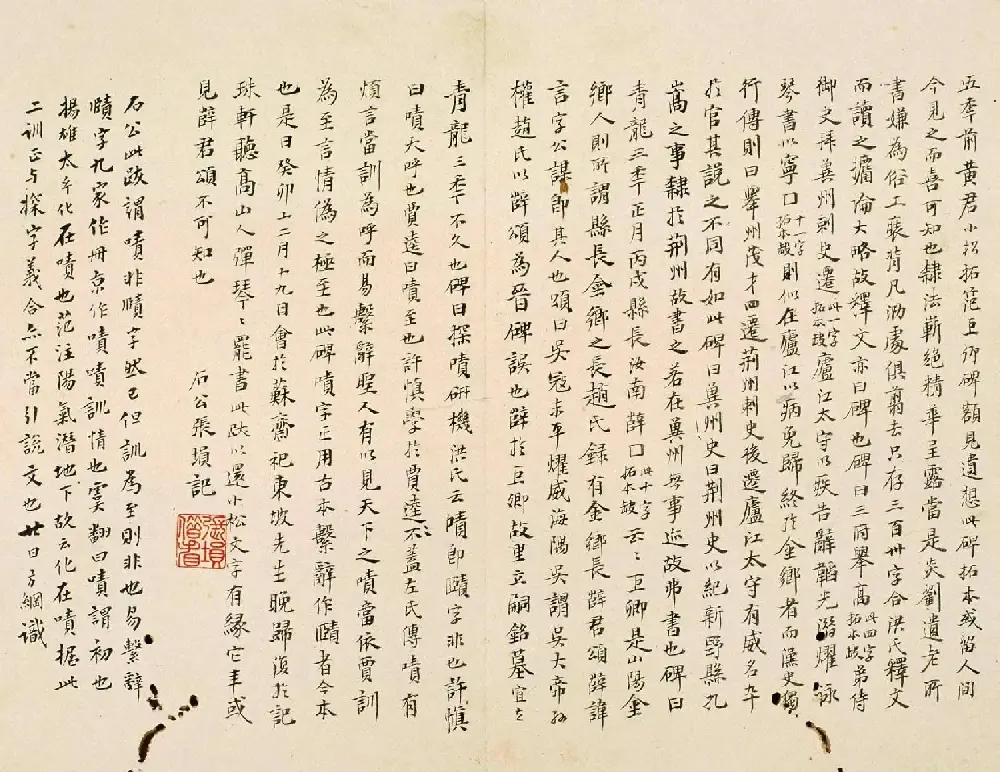 五年前黃君小松拓范巨卿碑額見遺想此碑拓本或留人間
今見之而喜可知也隸法嶄絕精華呈露當是炎劉遺老所
書嫌為俗工裝背凡泐處俱翦去只存三百卅字合洪氏釋文
而讀之淪大略故釋文亦曰碑也碑曰三府舉高此四字拓本缺弟侍
御史拜兾州刺史遷此一字拓本缺廬江太守以疾告辭韜光潛耀詠
琴書以寧囗十一字拓本缺則似在廬江以病免歸終於金鄉者而漢史獨
行傳則曰舉州茂才四遷荆州刺史後遷廬江太守有威名卒
於官其說之不同有如此碑曰兾州史曰荆州史以紀新野縣孔
嵩之事隸於荆州故書之若在兾州無事迹故弗書也碑曰
青龍三年正月丙戌縣長汝南薛囗此十字拓本缺云云巨卿是山陽金
鄉人則所謂縣長金鄉之長趙氏錄有金鄉長薛君頌薛諱
言字公謀即其人也頌曰吳冦赤車燿威海陽吳謂吳大帝孫
權趙氏以薛頌為晉碑誤也薛於巨卿故里立嗣銘墓宜之
青龍三年不久也碑曰探嘖研機洪氏云嘖即賾字非也許慎
曰嘖大呼也賈逵曰嘖至也許慎學於賈逵不蓋左氏傳嘖有
煩言當訓為呼而易繫辭聖人有以見天下之嘖當依賈訓
為至言情偽之極至也此碑嘖字正用古本繫辭作賾者今本
也是日癸卯十二月十九日會於蘇齋祀東坡先生晚歸復於記
珠軒聽高山人彈琴〻罷書此跋以還小松文字有緣它年或
見薛君頌不可知也
石公張塤記
石公此跋謂嘖非賾字然已但訓為至則非也易繫辭
賾字九家作冊京作嘖嘖訓情也虞翻曰嘖謂初也
揚雄太玄化在嘖也范注陽氣潛地下故云化在嘖据此
二訓正与探字義合亦不當引說文也 廿日方綱識